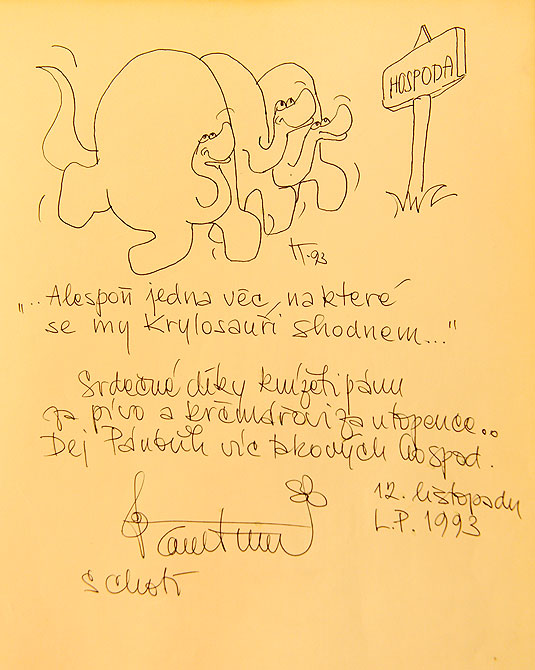 HOSPODA
H-93
"..Alespoň jedna věc, na které
se my Krylosauři shodnem..."
Srdečné díky knížeti pánu
za pivo a krčmářovi za utopence..
Dej Pánbůh víc takových hospod.
12. listopadu
L.P. 1993
s chotí